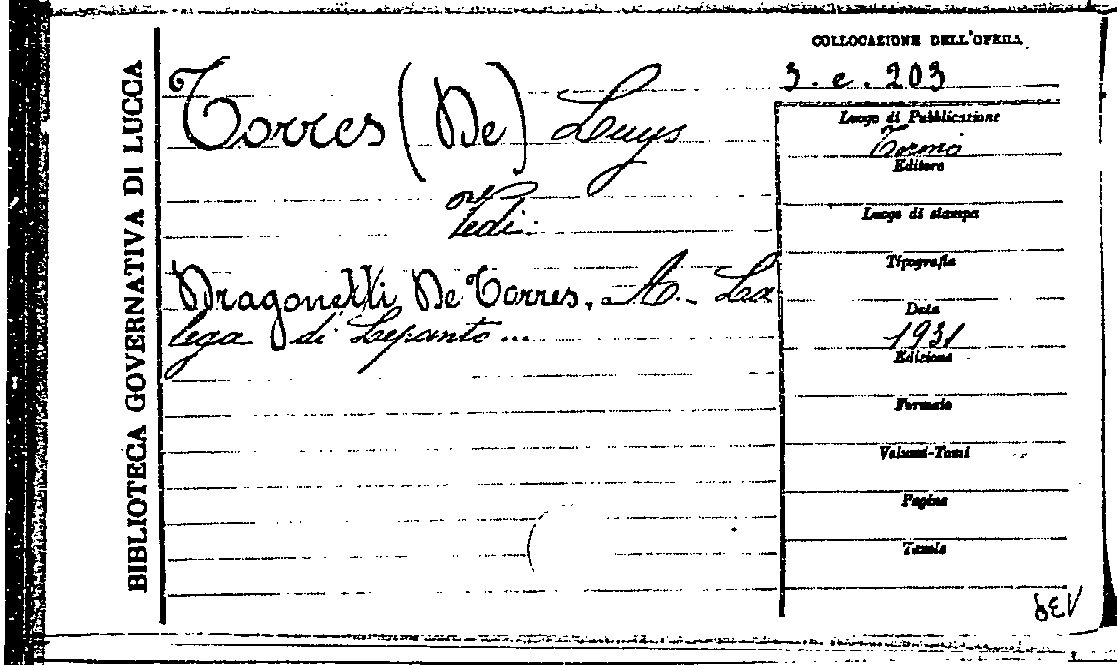 BIBLIOTECA GOVERNATIVA DI LUCCA
COLLOCAZIONE DELL'OPERA
3. e. 203
Torres (De) Luys
Vedi:
Dragonetti De Torres, A. - La
lega di Lepanto...
Luogo di Pubblicazione
Torino
Editore
Luogo di stampa
Tipografia
Data
1931
Edizione
Formato
Volumi-Tomi
Pagine
Tavole